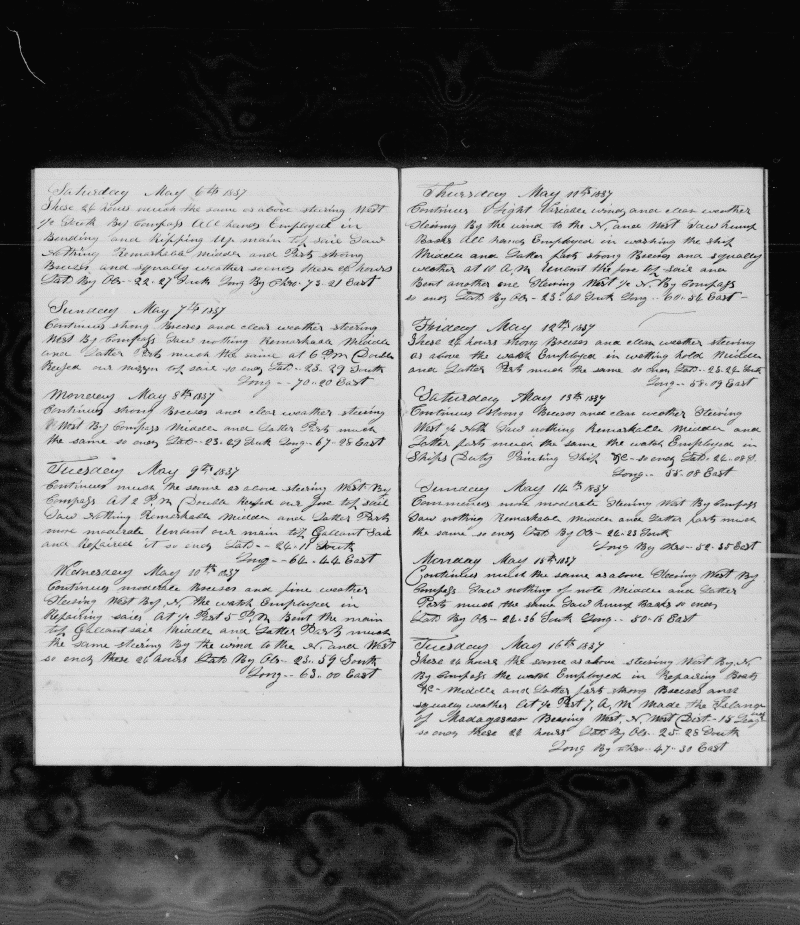 Saturday May 6th 1837
These 24 hours much the same as above steering West
1/2 South By Compass All hands Employed in
Bending and Ripping Up main top sail Saw
Nothing Remarkable midder and Parts strong
Breeses and squally weather so ends these 24 hours
Latt By Obs - 22-27 South Long By Chro - 73-21 East
Sunday May 7th 1837
Continues strong Breeses and clear weather steering
West By Compass Saw nothing Remarkable Midder
and Latter Parts much the same at 6 P.M Double
Reefed our mizzen top sail so ends Latt - 23-29 South
Long - - 70-20 East
Monday May 8th 1837
Continues strong Breeses and clear weather steering
West By Compass Midder and Latter Parts much
the same so ends Latt - 23-29 South Long - 67-28 East
Tuesday May 9th 1837
Continues much the same as above steering West By
Compass At 2 P.M Double Reefed our fore top sail
Saw Nothing Remarkable Midder and Latter Parts
more moderate Unbent our main top Gallant Sail
and Repaired it so ends Latt - - 24-11 South
Long - - 64-44 East
Wednesday May 10th 1837
Continues moderate Breeses and fine weather
Steering West By N, the watch Employed in
Repairing sailes At 1/2 Past 5 P.M Bent the main
top Gallant sail Midder and Latter Parts much
the same steering By the wind to the N. and West
so ends these 24 hours Latt By Obs - 23-59 South
Long - - 63-00 East
Thursday May 11th 1837
Continues Light Variable winds and clear weather
Steering By the wind to the N, and West Saw hump
Backs All hands Employed in washing the ship
Midder and Latter parts strong Breeses and squally
weather at 10 A.M. Unbent the fore top sail and
Bent another one Steering West 1/2 N. By Compass
so ends Latt By Obs - 23-40 South Long - - 60-54 East -
Friday May 12th 1837
These 24 hours strong Breeses and clear weather steering
as above the watch Employed in wetting hold Midder
and Latter Parts much the same so ends Latt - - 23-29 South
Long - - 58-09 East
Saturday May 13th 1837
Continues strong Breeses and clear weather Steering
West 1/2 Nth Saw nothing Remarkable Midder and
Latter parts much the same the watch Employed in
Ships Duty Painting Ship &C - so ends Latt - 24-08 S.
Long - - 55-08 East
Sunday May 14th 1837
Commences more moderate Steering West By Compass
Saw nothing Remarkable Midder and Latter parts much
the same so ends Latt By Obs - 24-23 South
Long By Chro - 52-35 East
Monday May 15th 1837
Continues much the same as above Steering West By
Compass Saw nothing of note Midder and Latter
Parts much the same Saw hump Backs so ends
Latt By Obs - 24-36 South Long - - 50-15 East
Tuesday May 16th 1837
These 24 hours the same as above steering West By N
By Compass the watch Employed in Repairing Boats
&C - Midder and Latter parts strong Breeses and
squally weather At 1/2 Past 7, A, M Made the Island
of Madagascar Bearing West, N, West Dist - 15 Leagues
so ends these 24 hours Latt By Obs - 25-23 South
Long By Chro - 47-30 East